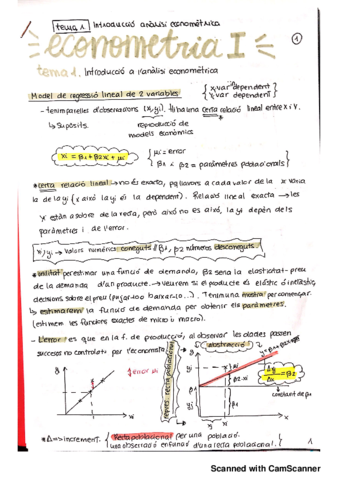 tema 1 Introducció anàlisi econométrica
econometria I
1
tema 1. Introducció a l'anàlisi econométrica
Model de regressió lineal de 2 variables { xi var dependent
yi var dependent }
- tenim parelles d'observacions (xi, yi). Hi ha una certa relació lineal entre X i Y.
↳ Supòsits. reproducció de
models econòmics
yi = β1 + β2xi + μi
{ μi = error
β1 i β2 = paràmetres poblacionals }
certa relació lineal → no és exacta, pq llavors a cada valor de la x varia
la de la y (x així la yi és la dependent). Relació lineal exacta → les
yx están a sobre de la recta, però això no es així, la yi depèn dels
paràmetres i de l'error.
xi, yi → valors numèrics coneguts i β1, β2 números desconeguts.
utilitat per estimar una funció de demanda, β2 seria la elasticitat-preu
de la demanda d'un producte → veurem si el producte és elàstic o inelàstic,
decisions sobre el preu (pujar-lo o baixar-lo...). Tenim una mostra per començar.
↳ estimarem la funció de demanda per obtenir els paràmetres.
(estimem les funcions exactes de micro i macro).
L'error: es que en la f. de producció, al observar les dades passen
successos no controlats per l'economista
(abstracció)
y
error xi
xi
yi
β2·xi
β1
xi
Δy/Δx = β2
constant de
Δ => increment. { Recta poblacional per una població.
una observació en funció d'una recta poblacional. }
1
Scanned with CamScanner